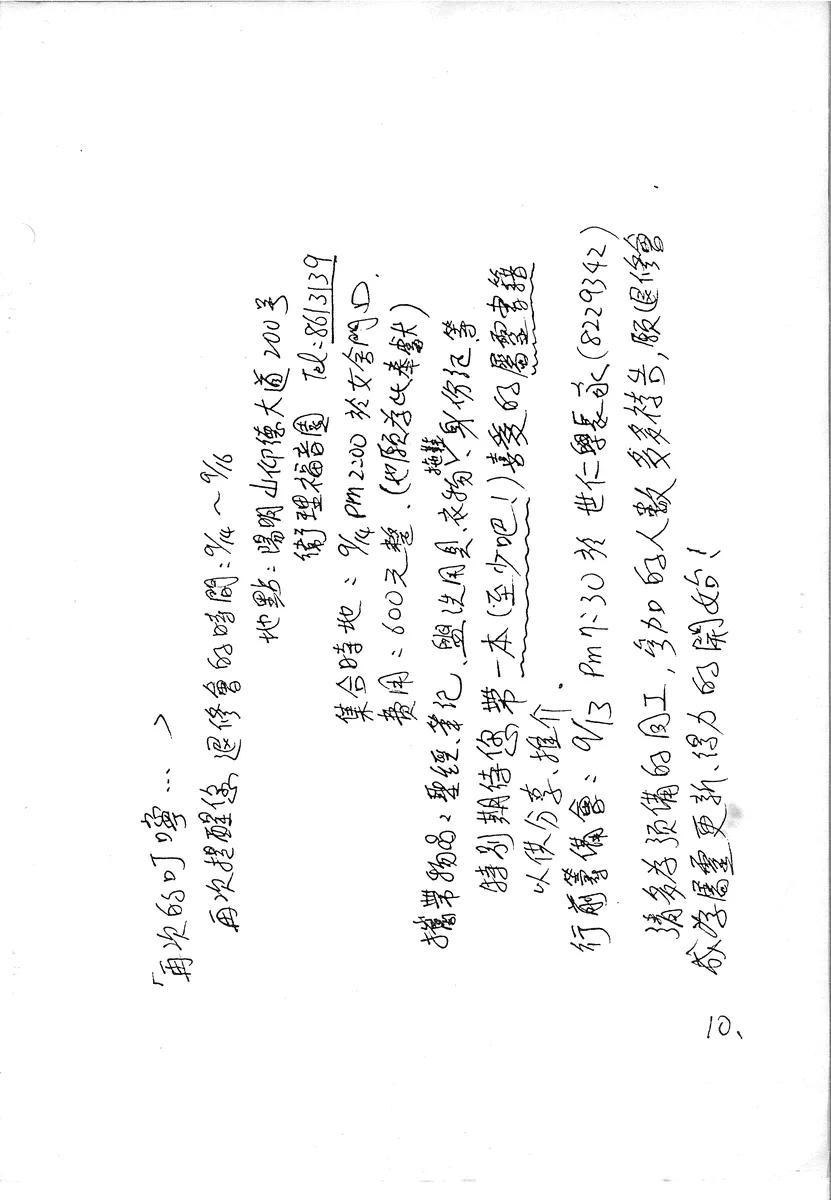 「再次的叮嚀…>
再次提醒您退修會的時間：9/14～9/16
地點：陽明山仰德大道200号
衛理福音園 Tel：8613139
集合時地：9/14 PM2:00於女舍門口.
費用：600元整.(也願為此奉獻)
拖鞋
攜帶物品：聖經、筆記、盥洗用具、衣物、身份証等
特別期待您帶一本(至少吧!)喜愛的屬靈書籍
以供分享、推介.
行前籌備會：9/13 PM7:30於世仁學長家(8229342)
請多為預備的同工,參加的人數多多禱告,願退修會
成為屬靈更新、得力的開始!
10、